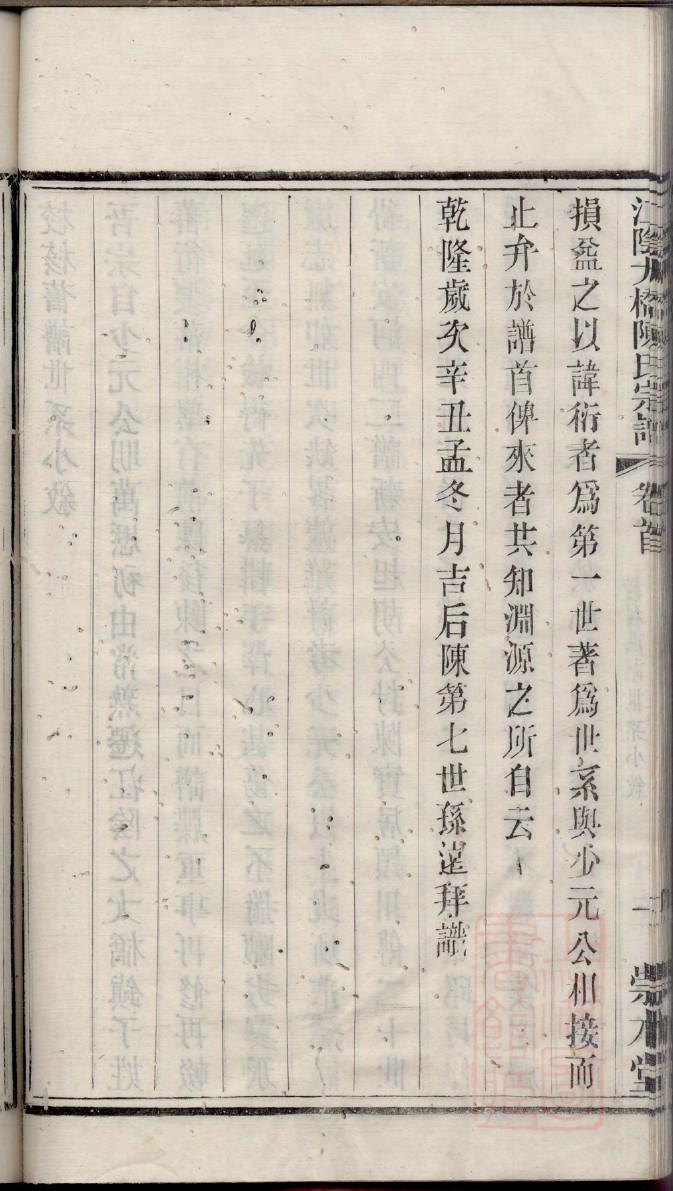 江陰大橋陳氏宗譜 卷首 一 崇本堂
損益之以諱衍者爲第一世著爲世系與少元公相接而
止弁於譜首俾來者共知淵源之所自云
乾隆歲次辛丑孟冬月吉后陳第七世孫 拜識